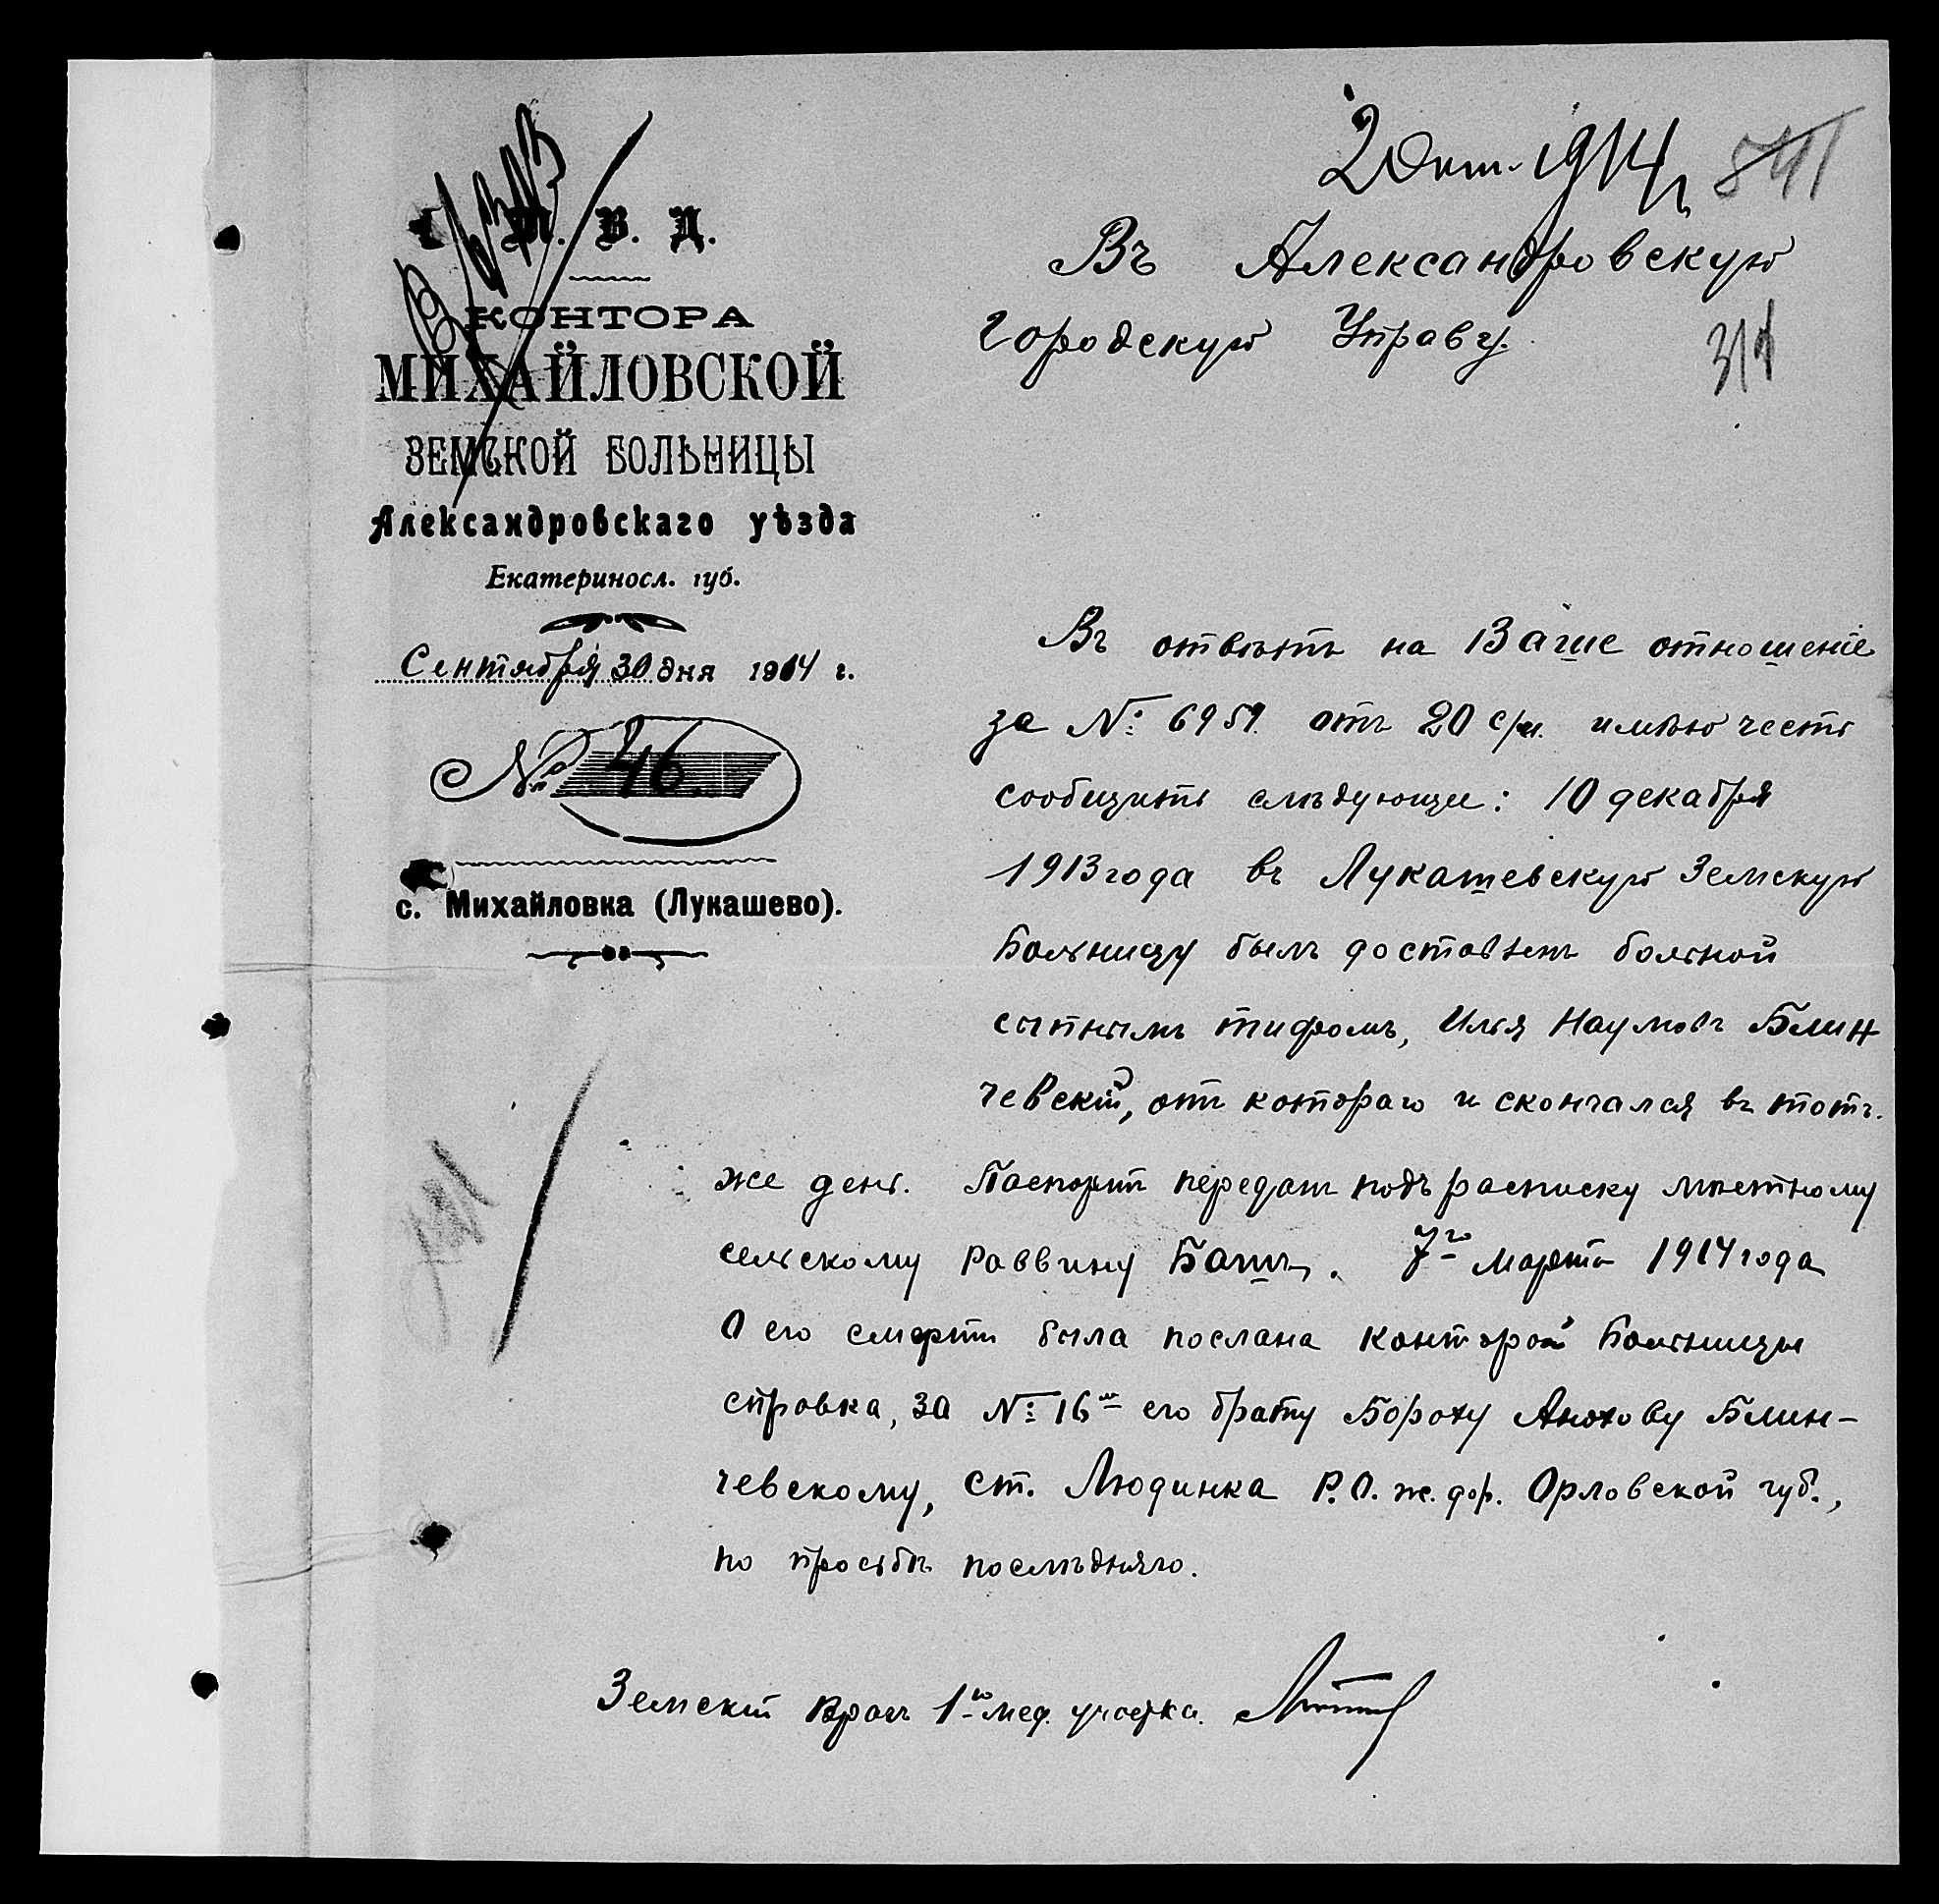 2 Окт. 1914 г
841
М. В. Д.
КОНТОРА
МИХАЙЛОВСКОЙ
ЗЕМСКОЙ БОЛЬНИЦЫ
Александровскаго уѣзда
Екатериносл. губ.
Сентября 30 дня 1914 г.
№ 46
с. Михайловка (Лукашево).
Въ Александровскую
Городскую Управу.
314
Въ отвѣтъ на Ваше отношеніе
за № 6959 отъ 20 с/м. имѣю честь
сообщить слѣдующее: 10 декабря
1913 года въ Лукашевскую Земскую
Больницу былъ доставленъ больной
сыпнымъ тифомъ, Илья Наумовъ Блин
чевскій, отъ котораго и скончался въ тотъ
же день. Паспортъ переданъ подъ расписку мѣстному
сельскому раввину Башъ. 7го Марта 1914 года
О его смерти была послана конторой Больницы
справка, за № 16м его брату Бороху Анохову Блин-
чевскому, ст. Людинка Р.О. ж. дор. Орловской губ.,
по просьбѣ послѣдняго.
Земскій врачъ 1го мед. участка.